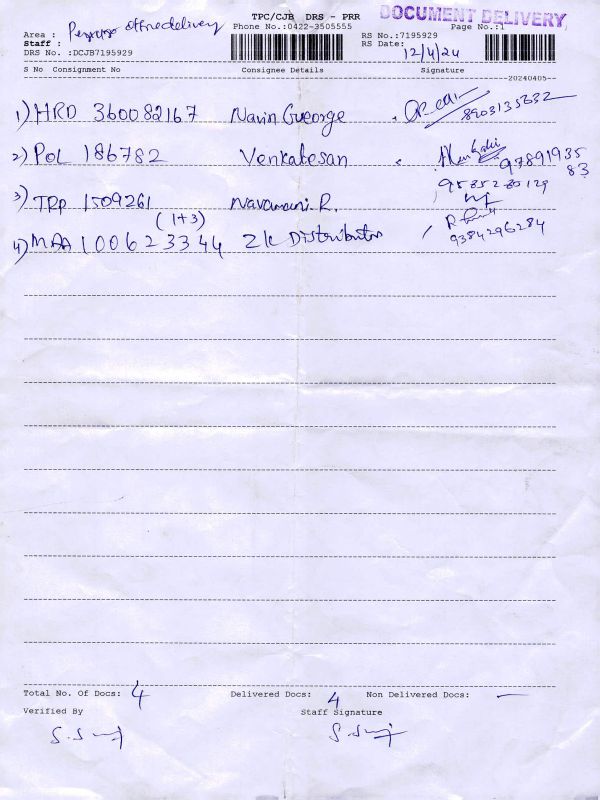 TPC/CJB DRS - PRR
DOCUMENT DELIVERY
Area : office delivery
Phone No.:0422-3505555
Page No.:1
Staff :
RS No.:7195929
RS Date: 12/4/24
DRS No. :DCJB7195929
S No Consignment No Consignee Details Signature
20240405
1) HRD 360082167 Navin Gueorge 8903135632
2) POL 186782 Venkatesan 9789193583
3) TRP 1509261 Navamani R. 9535230129
(1+3)
4) MAA 100623344 ZK Distributor 9384296284
Total No. Of Docs: 4 Delivered Docs: 4 Non Delivered Docs: —
Verified By Staff Signature